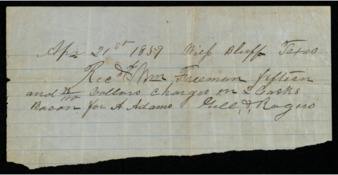 Apr 21st 1859 Bluff Texas
Recd of Wm Freeman fifteen
and Dollars charges on 2 Casks
Bacon for A Adams Gill & Rogers